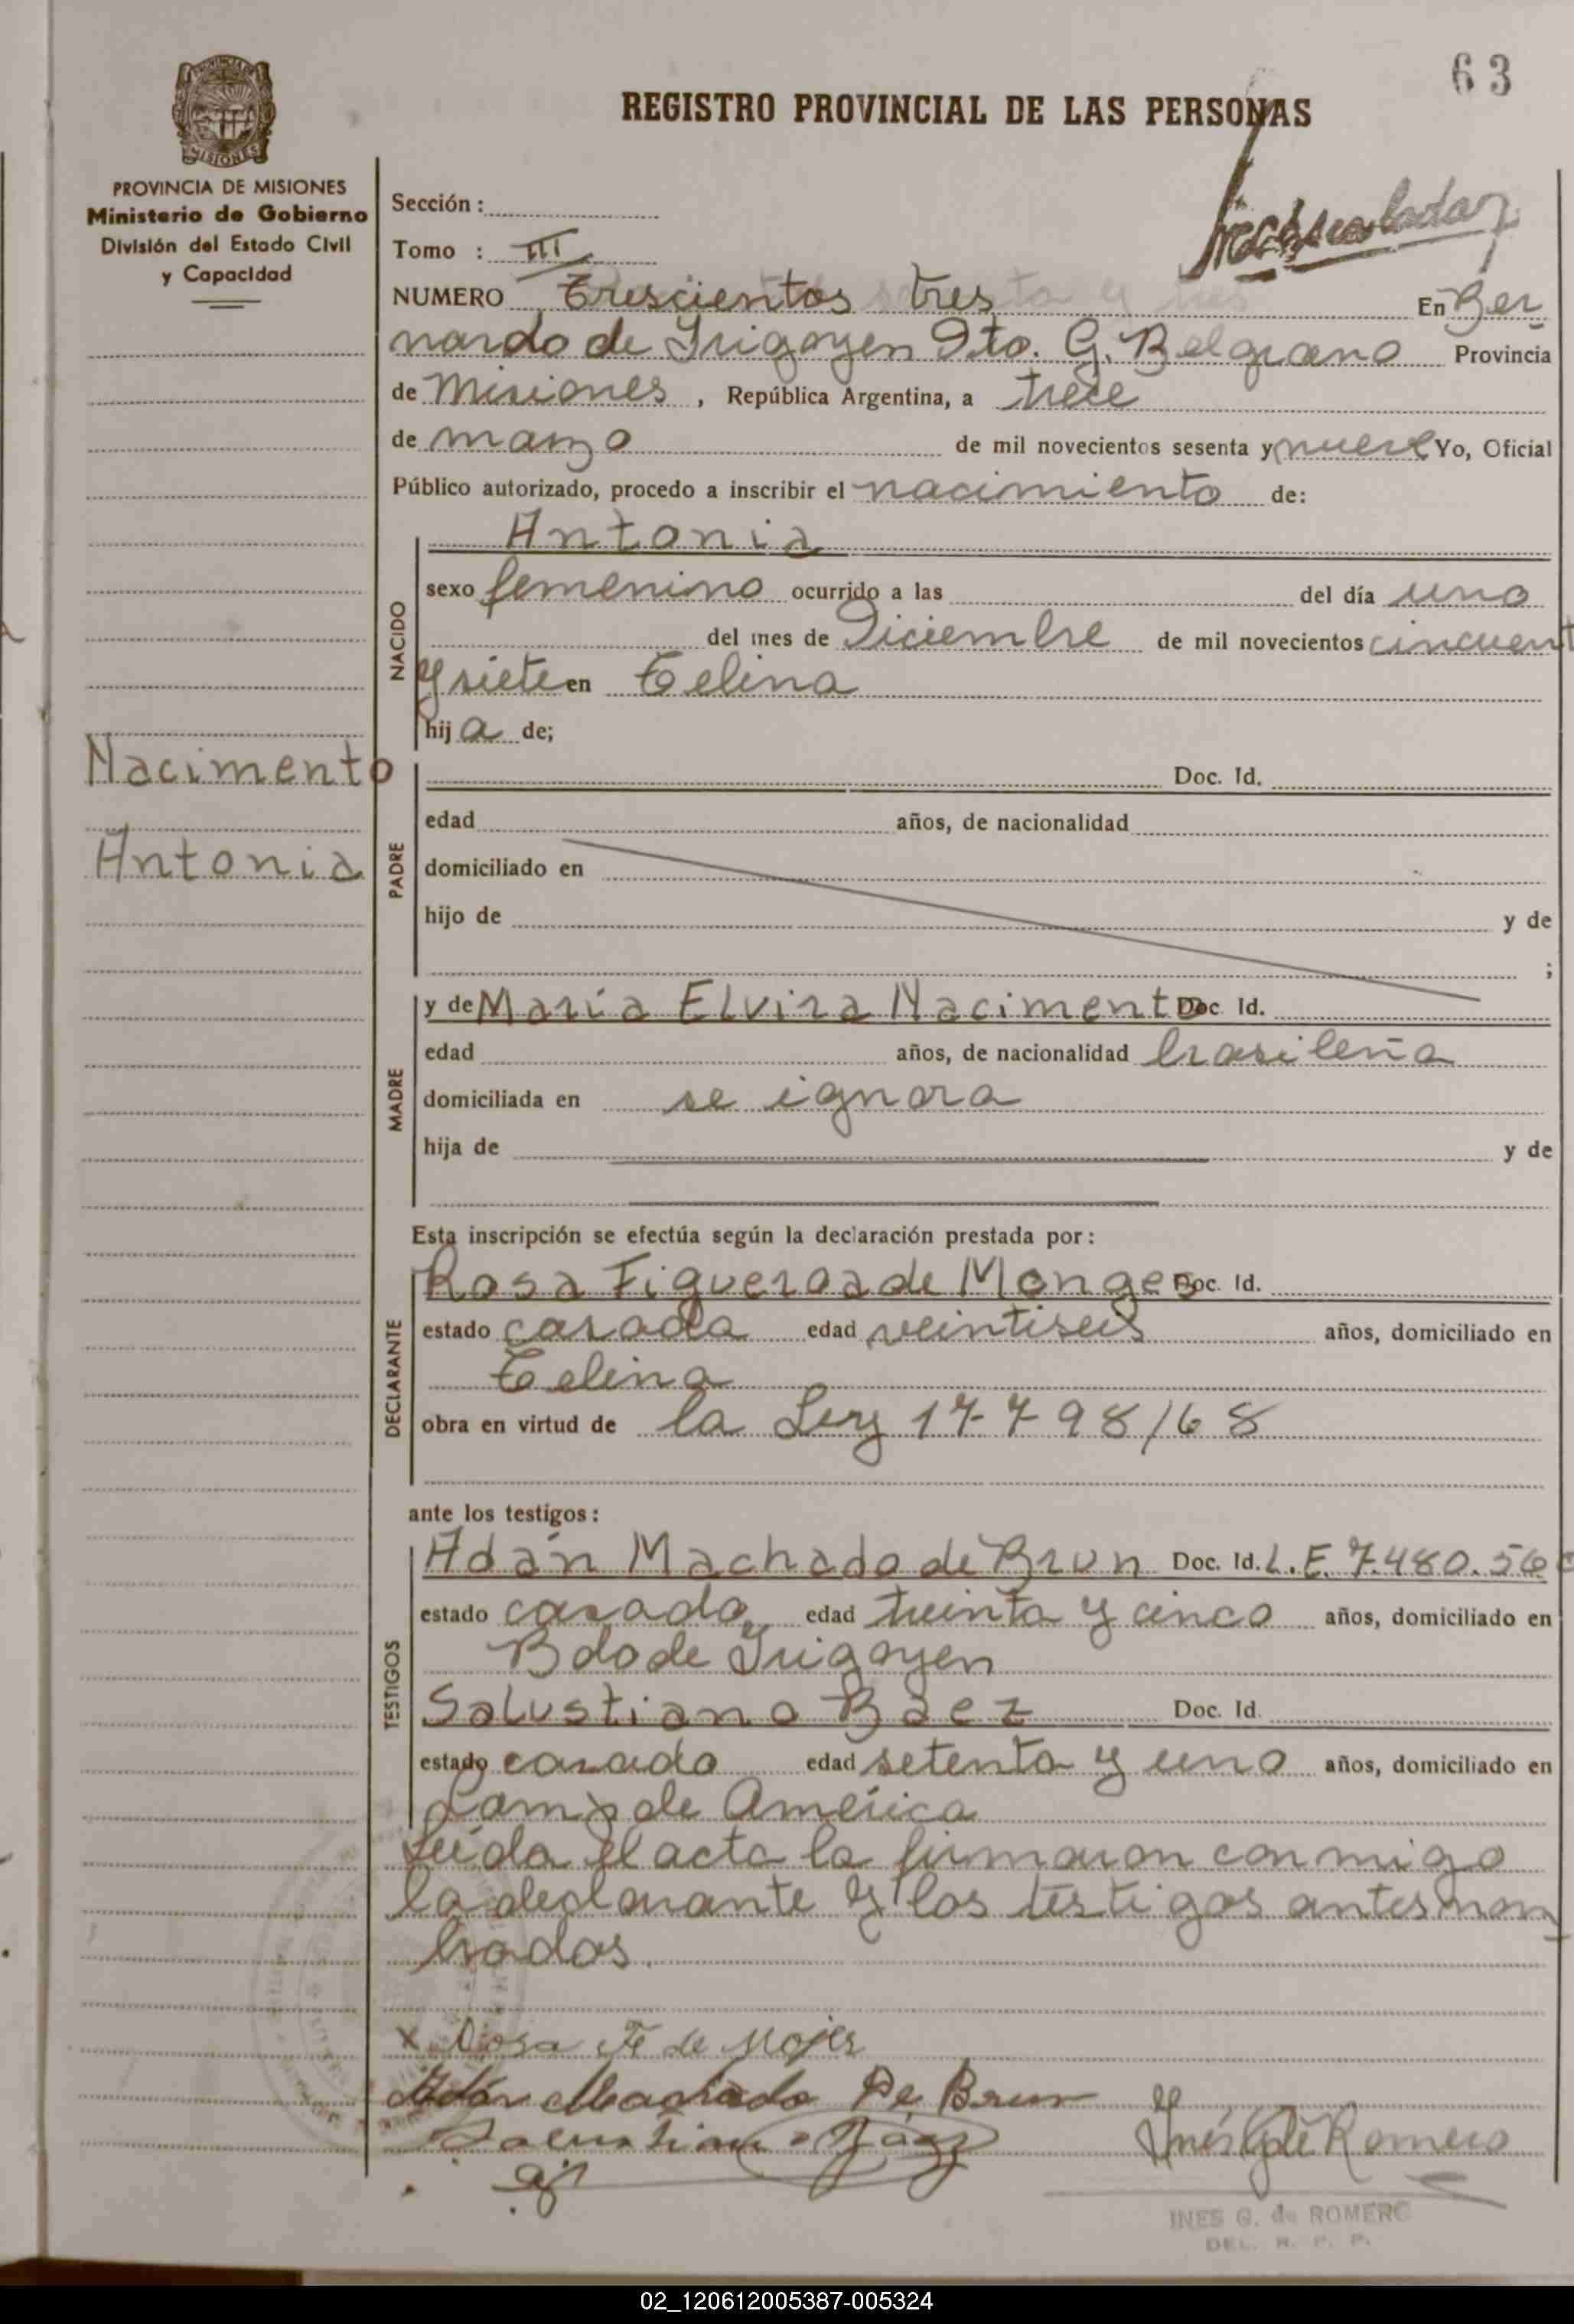 63
REGISTRO PROVINCIAL DE LAS PERSONAS
MISIONES
PROVINCIA DE MISIONES
Ministerio de Gobierno
División del Estado Civil
y Capacidad
Sección :
Tomo : III
NUMERO Trescientos tres En Ber
nardo de Irigoyen Dto. G. Belgrano Provincia
de Misiones , República Argentina, a trece
de marzo de mil novecientos sesenta y nueve Yo, Oficial
Público autorizado, procedo a inscribir el nacimiento de:
NACIDO
Antonia
sexo femenino ocurrido a las del día uno
del mes de Diciembre de mil novecientos cincuent
y siete en Celina
hija de;
Nacimento
Antonia
PADRE
Doc. Id.
edad años, de nacionalidad
domiciliado en
hijo de y de
;
MADRE
y de María Elvira Nacimento Doc. Id.
edad años, de nacionalidad brasileña
domiciliada en se ignora
hija de y de
Esta inscripción se efectúa según la declaración prestada por :
DECLARANTE
Rosa Figueroa de Monges Doc. Id.
estado casada edad veintiseis años, domiciliado en
Celina
obra en virtud de la Ley 17798/68
ante los testigos :
TESTIGOS
Adán Machado de Brun Doc. Id. L.E. 7.480.56
estado casado edad treinta y cinco años, domiciliado en
Bdo de Irigoyen
Salustiano Báez Doc. Id.
estado casado edad setenta y uno años, domiciliado en
de América
Leida el acta la firmaron conmigo
la declarante y los testigos antes nom
brados.
x Rosa F de Mojes
Adán Machado De Brun
Salustiano Báez
Inés G de Romero
INES G. de ROMERO
DEL. R. P. P.
02_120612005387-005324